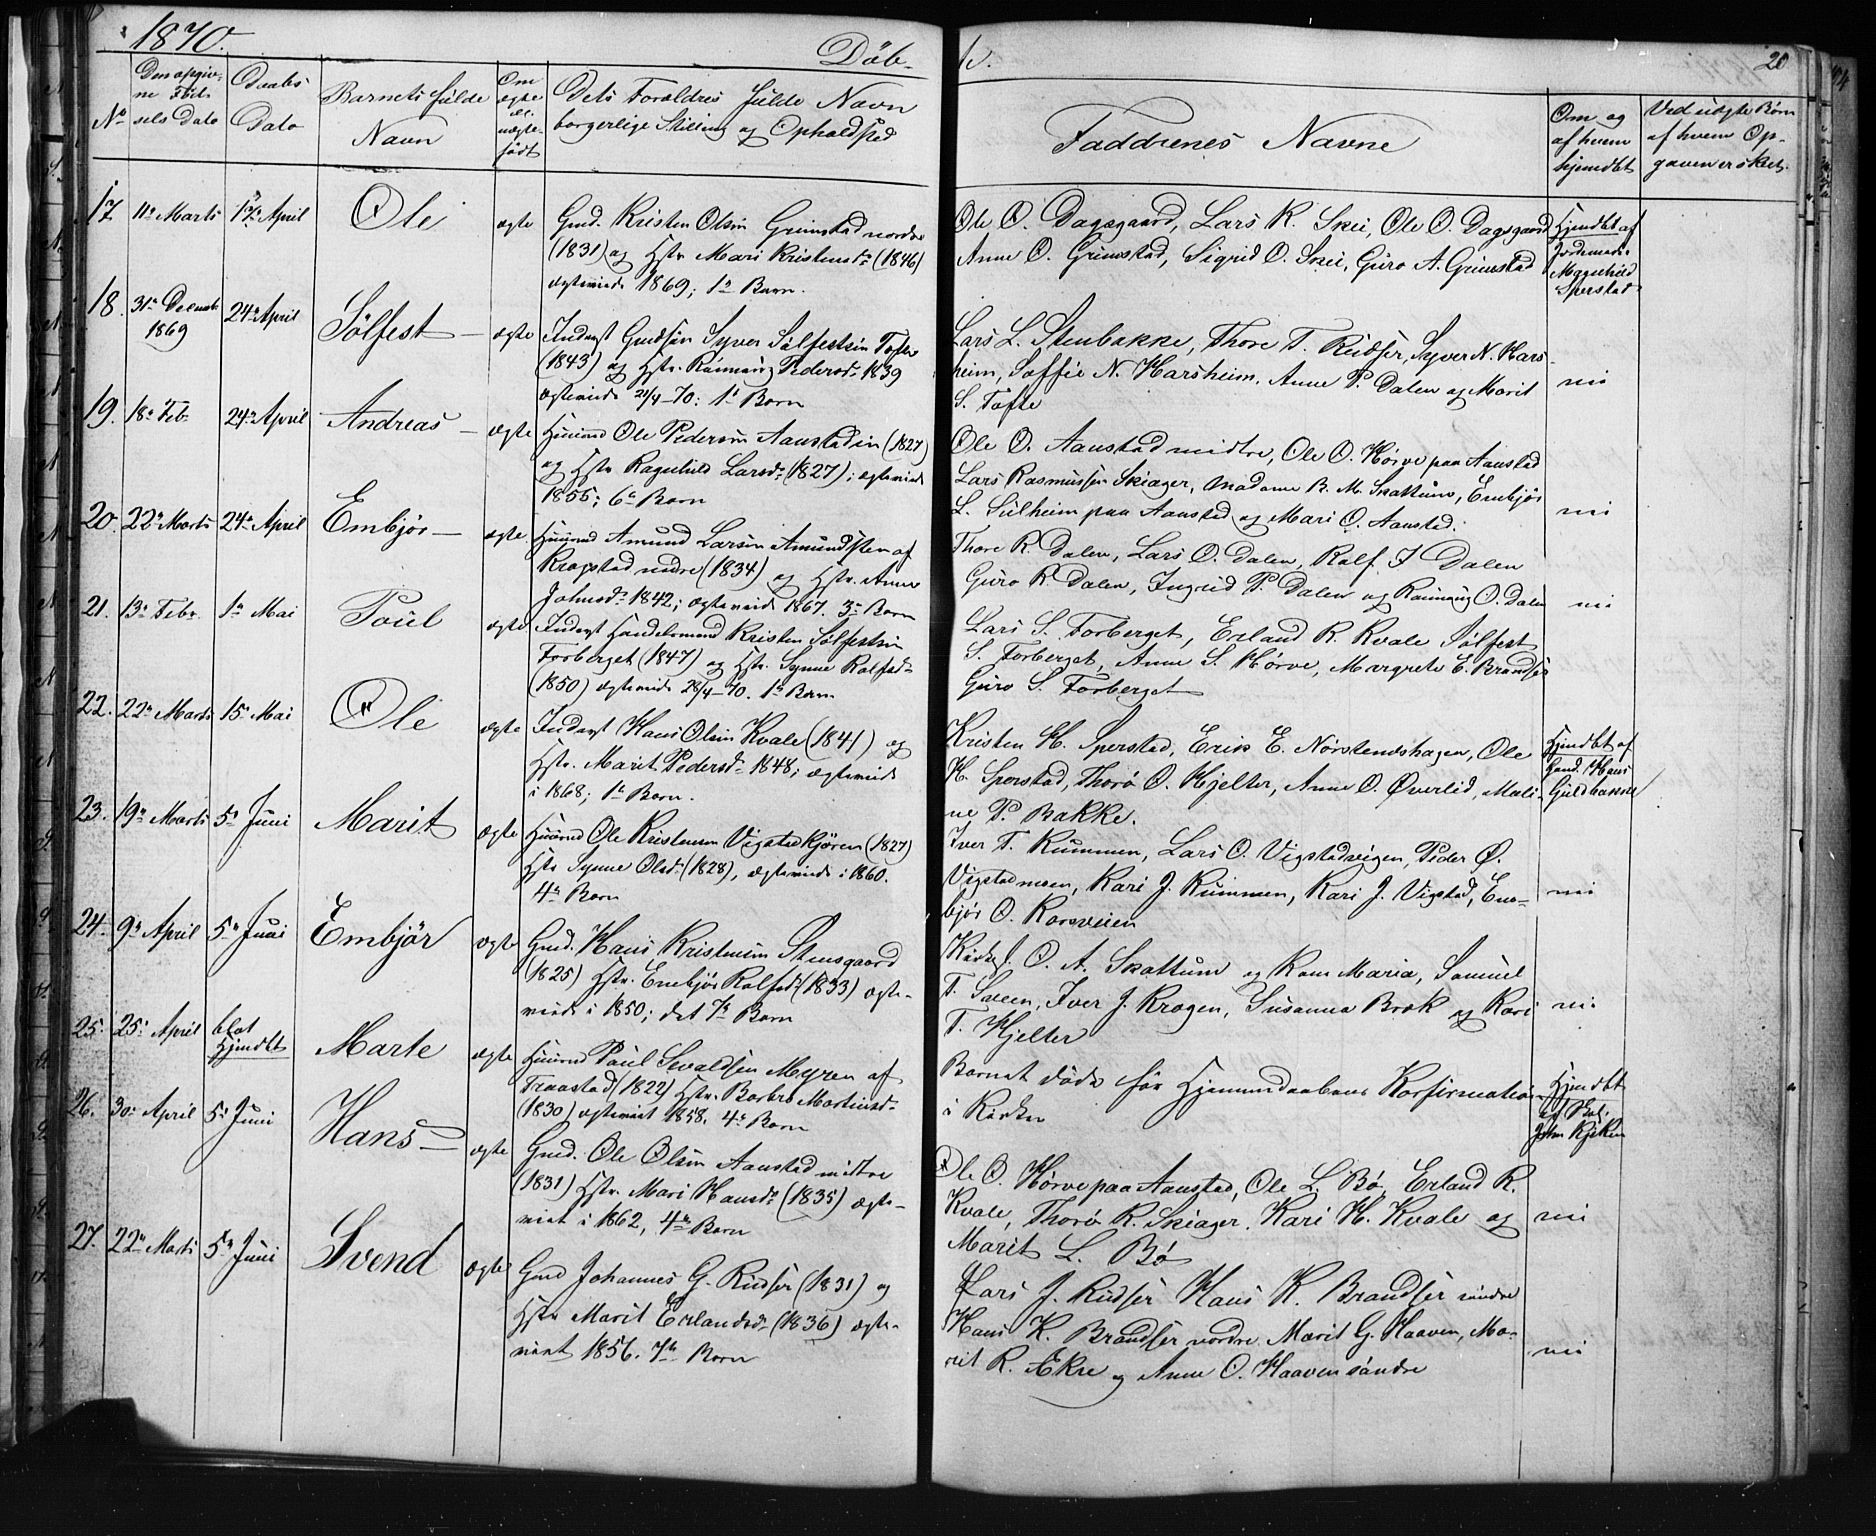 1870.
Döb-
te.
20
No
Den opgiv-
ne Föd-
sels Dato
Daabs
Dato
Barnets fulde
Navn
Om
ægte
el.
uægte
födt
Dets Forældres fulde Navn
borgerlige Stilling og Opholdssted
Faddrenes Navne
Om og
af hvem
hjemdöbt
Ved uægte Börn
af hvem Op-
gaven er sket.
17 11te Marts 17de April Ole ægte Gmd. Kristen Olsen Grimstad nordre
(1831) og Hstr. Mari Kristensdr (1846)
ægteviede 1869; 1te Barn.
Ole O. Dagsgaard, Lars K. Skei, Ole O. Dagsgaard
Anne O. Grimstad, Sigrid O. Skei, Guro A. Grimstad
Hjemdbt af
Jordemoder
Magnhild
Sperstad
18. 31te Decmbr. 24de April Sölfest ægte Inderst Gmdsön Syver Sölfestsen Tofte
1869
(1843) og Hstr. Rönnaug Pedersdr 1839
ægteviede 21/4-70; 1te Barn
Lars L. Stenbakke, Thore T. Rudser, Syver N. Hars-
heim, Soffie N. Harsheim, Anne P. Dalen og Marit
S. Tofte
nei
19. 18de Feb. 24de April Andreas ægte Huusmd Ole Pedersen Aanstadeie (1827)
og Hstr. Ragnhild Larsdr (1827); ægteviede
1855; 6te Barn
Ole O. Aanstad midtre, Ole O. Hörve paa Aanstad
Lars Rasmussen Skiager, Madame B. M. Skattum, Embjör
L. Sulheim paa Aanstad og Mari O. Aanstad.
nei
20. 22de Marts 24de April Embjör ægte Huusmd Amund Larsen Amundsten af
Kragstad nedre (1834) og Hstr. Anne
Johnsdr 1842; ægteviede 1867. 3te Barn
Thore R. Dalen, Lars O. Dalen, Rolf J Dalen
Guro R. Dalen, Ingrid P. Dalen og Rönnaug O. Dalen
nei
21. 13de Febr. 1te Mai Poul ægte Inderst Handelsmand Kristen Sölfestsen
Forberget (1847) og Hstr. Synne Rolfsdr
(1850) ægteviede 28/4-70. 1te Barn
Lars S. Forberget, Erland R. Kvale Sölfest
S. Forberget, Anne S. Hörve, Margrete E. Brandser
Guro S. Forberget
22. 22de Marts 15de Mai Ole ægte Inderst Hans Olsen Kvale (1841) og
Hstr. Marit Pedersdr 1848; ægteviede
i 1868; 1te Barn.
Kristen H. Sperstad, Erik E. Nörstenæshagen, Ole
H. Sperstad, Thorö O. Hjelter, Anne O. Øverlid, Mali-
ne P. Bakke.
Hjemdbt af
Gmd. Hans
Guldbakke
23. 19de Marts 5te Juni Marit ægte Huusmd Ole Kristensen Vigstadkjören (1827)
Hstr Synne Olsdr (1828), ægteviede i 1860.
4de Barn
Iver T. Rummen, Lars O. Vigstadeigen, Peder Ø.
Vigstadmoen, Kari J. Rummen, Kari J. Vigstad, Em-
björ O. Korsveien
nei
24. 9de April 5te Juni Embjör ægte Gmd. Hans Kristensen Stensgaard
(1825) Hstr. Embjör Rolfsdr (1833) ægte-
viede i 1850; det 7de Barn
Kirkes. O. A. Skattum og Kone Maria, Samuel
T. Sveen, Iver J. Kragen, Susanna Bræk og Kari
T. Hjelter
nei
25. 25de April blot
Hjemdbt Marte ægte Huusmd Paul Sevaldsen Myren af
Traastad (1822) Hstr. Barbro Martinsdr
(1830) ægteviet 1858. 4de Barn
Barnet döde för Hjemmedaabens Konfirmation
i Kirken
Hjemdbt
af
John Kjeken
26. 30te April 5te Juni Hans ægte Gmd. Ole Olsen Aanstad midtre
(1831) Hstr. Mari Hansdr (1835) ægte-
viet i 1862, 4de Barn
Ole O. Hörve paa Aanstad, Ole L. Bö, Erland R.
Kvale, Thorö R. Skiager, Kari H. Kvale og
Marit L. Bö
nei
27. 22de Marts 5te Juni Svend ægte Gmd Johannes G. Rudser (1831) og
Hstr Marit Erlandsdr (1836) ægte-
viet 1856. 7de Barn
Lars J. Rudser Hans K. Brandser söndre
Hans K. Brandser nordre, Marit G. Haaven, Ma-
rit R. Ekre og Anne O. Haaven söndre
nei